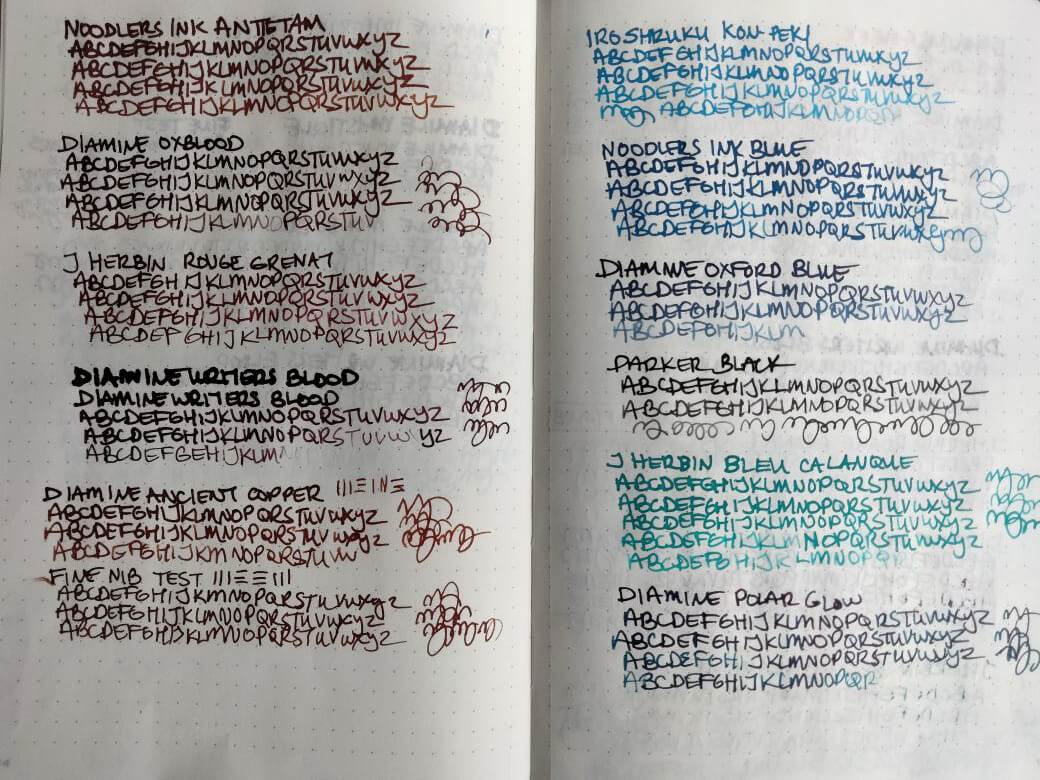 NOODLERS INK ANTIETAM
ABCDEFGHIJKLMNOPQRSTUVWXYZ
ABCDEFGHIJKLMNOPQRSTUVWXYZ
ABCDEFGHIJKLMNOPQRSTUVWXYZ
ABCDEFGHIJKLMNOPQRSTUVWXYZ
DIAMINE OXBLOOD
ABCDEFGHIJKLMNOPQRSTUVWXYZ
ABCDEFGHIJKLMNOPQRSTUVWXYZ
ABCDEFGHIJKLMNOPQRSTUVWXYZ
ABCDEFGHIJKLMNOPQRSTUV
J HERBIN ROUGE GRENAT
ABCDEFGHIJKLMNOPQRSTUVWXYZ
ABCDEFGHIJKLMNOPQRSTUVWXYZ
ABCDEFGHIJKLMNOPQRSTUVWXYZ
ABCDEFGHIJKLMNOPQRSTUVWXYZ
DIAMINE WRITERS BLOOD
DIAMINE WRITERS BLOOD
ABCDEFGHIJKLMNOPQRSTUVWXYZ
ABCDEFGHIJKLMNOPQRSTUVW YZ
ABCDEFGEHIJKLM
DIAMINE ANCIENT COPPER
ABCDEFGHIJKLMNOPQRSTUVWXYZ
ABCDEFGHIJKLMNOPQRSTUVWXYZ
ABCDEFGHIJKMNOPQRSTUVW
FINE NIB TEST
ABCDEFGHIJKLMNOPQRSTUVWXYZ
ABCDEFGHIJKLMNOPQRSTUVWXYZ
ABCDEFGHIJKLMNOPQRSTUVWXYZ
IROSHRUKU KON-PEKI
ABCDEFGHIJKLMNOPQRSTUVWXYZ
ABCDEFGHIJKLMNOPQRSTUVWXYZ
ABCDEFGHIJKLMNOPQRSTUVWXYZ
ABCDEFGHIJKLMNOPQ
NOODLERS INK BLUE
ABCDEFGHIJKLMNOPQRSTUVWXYZ
ABCDEFGHIJKLMNOPQRSTUVWXYZ
ABCDEFGHIJKLMNOPQRSTUVWXYZ
ABCDEFGHIJKLMNOPQRSTUVWXY
DIAMINE OXFORD BLUE
ABCDEFGHIJKLMNOPQRSTUVWXYZ
ABCDEFGHIJKLMNOPQRSTUVWXYZ
ABCDEFGHIJKLM
PARKER BLACK
ABCDEFGHIJKLMNOPQRSTUVWXYZ
ABCDEFGHIJKLMNOPQRSTUVWXYZ
J HERBIN BLEU CALANQUE
ABCDEFGHIJKLMNOPQRSTUVWXYZ
ABCDEFGHIJKLMNOPQRSTUVWXYZ
ABCDEFGHIJKLMNOPQRSTUVWXYZ
ABCDEFGHIJKLMNOPQRSTUVWXYZ
ABCDEFGHIJKLMNOPQ
DIAMINE POLAR GLOW
ABCDEFGHIJKLMNOPQRSTUVWXYZ
ABCDEFGHIJKLMNOPQRSTUVWXYZ
ABCDEFGHIJKLMNOPQRSTUVWXYZ
ABCDEFGHIJKLMNOPQR